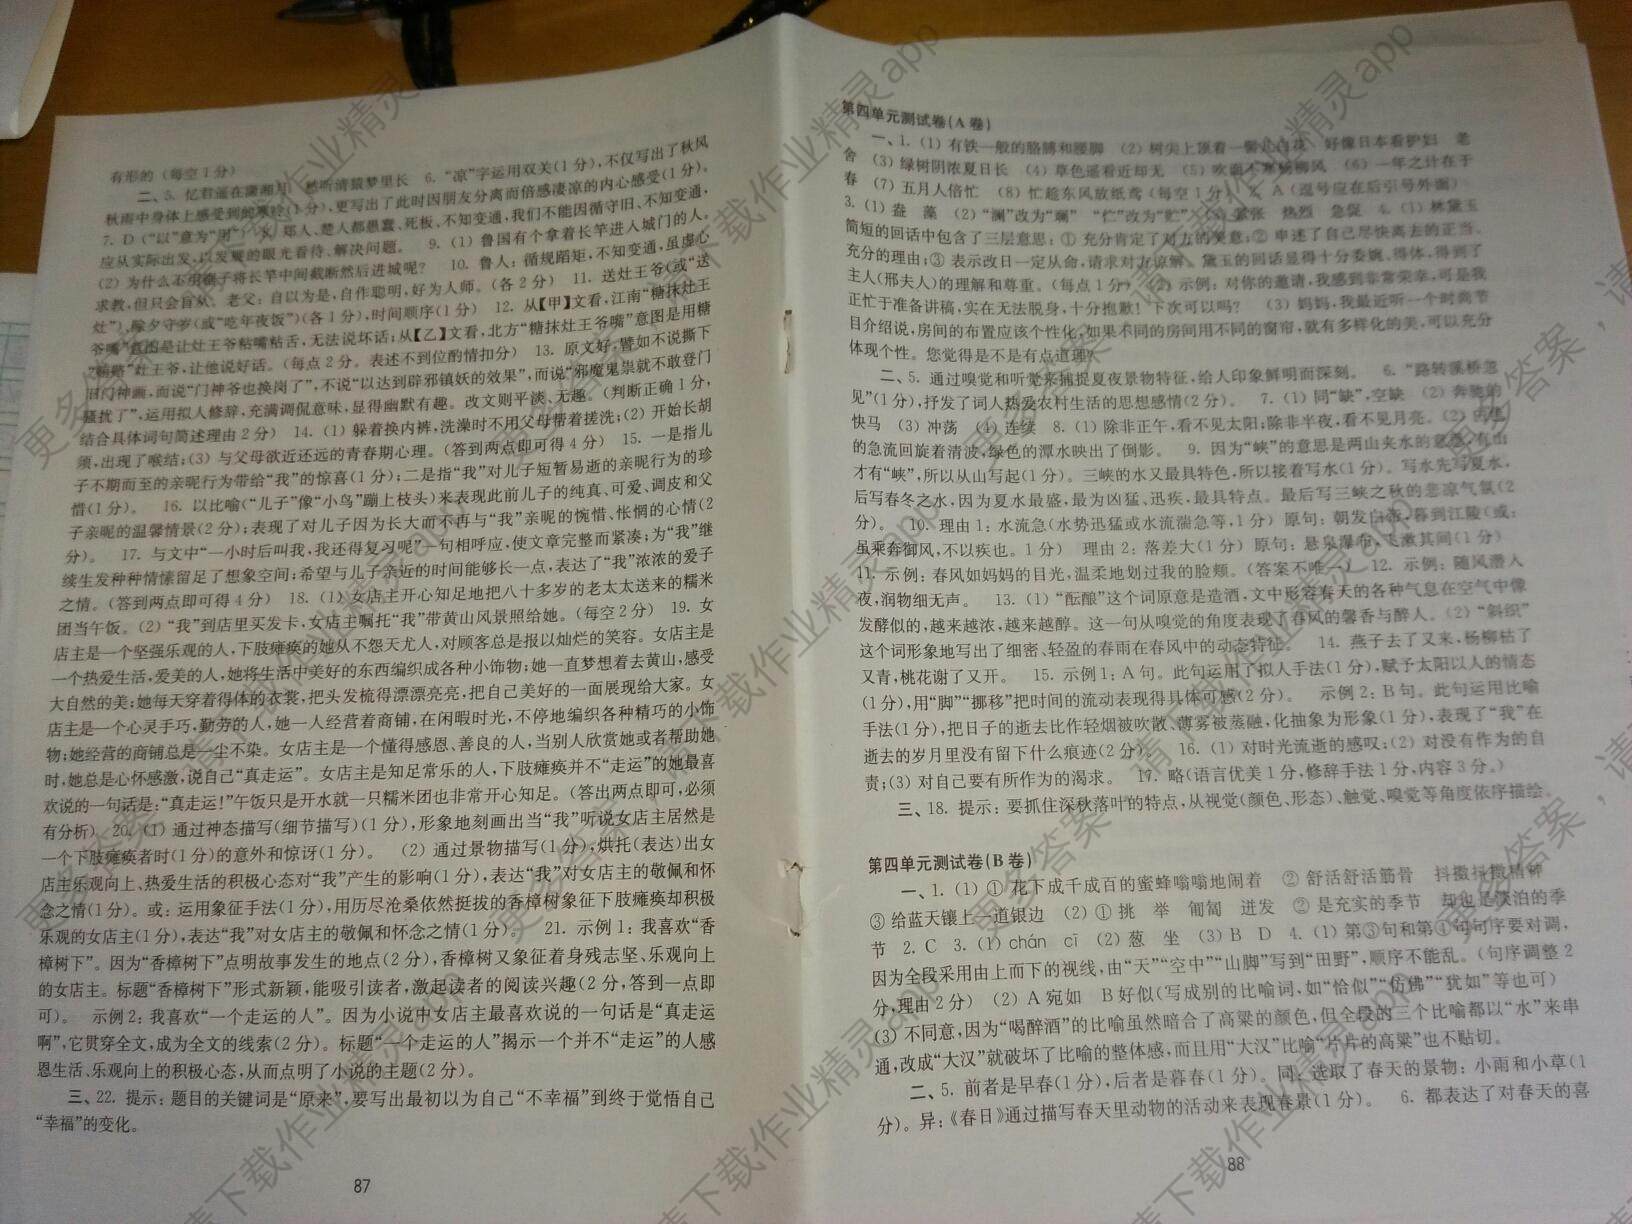 有形的(每空1分)
二、5. 忆君遥在潇湘月 愁听清猿梦里长 6. “凉”字运用双关(1分),不仅写出了秋风
秋雨中身体上感受到的寒冷(1分),更写出了此时因朋友分离而倍感凄凉的内心感受(1分)。
7. D (“以”意为“用”) 8. 郑人、楚人都愚蠢、死板、不知变通,我们不能因循守旧、不知变通,
应从实际出发,以发展的眼光看待、解决问题。 9. (1) 鲁国有个拿着长竿进入城门的人。
(2) 为什么不用锯子将长竿中间截断然后进城呢? 10. 鲁人:循规蹈矩,不知变通,虽虚心
求教,但只会盲从。老父:自以为是,自作聪明,好为人师。(各2分) 11. 送灶王爷(或“送
灶”),除夕守岁(或“吃年夜饭”)(各1分),时间顺序(1分) 12. 从【甲】文看,江南“糖抹灶王
爷嘴”意图是让灶王爷粘嘴粘舌,无法说坏话;从【乙】文看,北方“糖抹灶王爷嘴”意图是用糖
“贿赂”灶王爷,让他说好话。(每点2分。表述不到位酌情扣分) 13. 原文好,譬如不说撕下
旧门神画,而说“门神爷也换岗了”,不说“以达到辟邪镇妖的效果”,而说“邪魔鬼祟就不敢登门
骚扰了”,运用拟人修辞,充满调侃意味,显得幽默有趣。改文则平淡、无趣。(判断正确1分,
结合具体词句简述理由2分) 14. (1) 躲着换内裤,洗澡时不用父母帮着搓洗;(2) 开始长胡
须,出现了喉结;(3) 与父母欲近还远的青春期心理。(答到两点即可得4分) 15. 一是指儿
子不期而至的亲昵行为带给“我”的惊喜(1分);二是指“我”对儿子短暂易逝的亲昵行为的珍
惜(1分)。 16. 以比喻(“儿子”像“小鸟”蹦上枝头)来表现此前儿子的纯真、可爱、调皮和父
子亲昵的温馨情景(2分);表现了对儿子因为长大而不再与“我”亲昵的惋惜、怅惘的心情(2
分)。 17. 与文中“一小时后叫我,我还得复习呢”一句相呼应,使文章完整而紧凑;为“我”继
续生发种种情愫留足了想象空间;希望与儿子亲近的时间能够长一点,表达了“我”浓浓的爱子
之情。(答到两点即可得4分) 18. (1) 女店主开心知足地把八十多岁的老太太送来的糯米
团当午饭。(2) “我”到店里买发卡,女店主嘱托“我”带黄山风景照给她。(每空2分) 19. 女
店主是一个坚强乐观的人,下肢瘫痪的她从不怨天尤人,对顾客总是报以灿烂的笑容。女店主是
一个热爱生活,爱美的人,她将生活中美好的东西编织成各种小饰物;她一直梦想着去黄山,感受
大自然的美;她每天穿着得体的衣裳,把头发梳得漂漂亮亮,把自己美好的一面展现给大家。女
店主是一个心灵手巧,勤劳的人,她一人经营着商铺,在闲暇时光,不停地编织各种精巧的小饰
物;她经营的商铺总是一尘不染。女店主是一个懂得感恩、善良的人,当别人欣赏她或者帮助她
时,她总是心怀感激,说自己“真走运”。女店主是知足常乐的人,下肢瘫痪并不“走运”的她最喜
欢说的一句话是:“真走运!”午饭只是开水就一只糯米团也非常开心知足。(答出两点即可,必须
有分析) 20. (1) 通过神态描写(细节描写)(1分),形象地刻画出当“我”听说女店主居然是
一个下肢瘫痪者时(1分)的意外和惊讶(1分)。 (2) 通过景物描写(1分),烘托(表达)出女
店主乐观向上、热爱生活的积极心态对“我”产生的影响(1分),表达“我”对女店主的敬佩和怀
念之情(1分)。或:运用象征手法(1分),用历尽沧桑依然挺拔的香樟树象征下肢瘫痪却积极
乐观的女店主(1分),表达“我”对女店主的敬佩和怀念之情(1分)。 21. 示例1:我喜欢“香
樟树下”。因为“香樟树下”点明故事发生的地点(2分),香樟树又象征着身残志坚、乐观向上
的女店主。标题“香樟树下”形式新颖,能吸引读者,激起读者的阅读兴趣(2分,答到一点即
可)。 示例2:我喜欢“一个走运的人”。因为小说中女店主最喜欢说的一句话是“真走运
啊”,它贯穿全文,成为全文的线索(2分)。标题“一个走运的人”揭示一个并不“走运”的人感
恩生活、乐观向上的积极心态,从而点明了小说的主题(2分)。
三、22. 提示:题目的关键词是“原来”,要写出最初以为自己“不幸福”到终于觉悟自己
“幸福”的变化。
87
第四单元测试卷(A卷)
一、1. (1) 有铁一般的胳膊和腰脚 (2) 树尖上顶着一髻儿白花 好像日本看护妇 老
舍 (3) 绿树阴浓夏日长 (4) 草色遥看近却无 (5) 吹面不寒杨柳风 (6) 一年之计在于
春 (7) 五月人倍忙 (8) 忙趁东风放纸鸢(每空1分) 2. A (逗号应在后引号外面)
3. (1) 奁 藻 (2) “澜”改为“斓” “伫”改为“贮” (3) 紧张 热烈 急促 4. (1) 林黛玉
简短的回话中包含了三层意思:① 充分肯定了对方的美意;② 申述了自己尽快离去的正当、
充分的理由;③ 表示改日一定从命,请求对方谅解。黛玉的回话显得十分委婉、得体,得到了
主人(邢夫人)的理解和尊重。(每点1分) (2) 示例:对你的邀请,我感到非常荣幸,可是我
正忙于准备讲稿,实在无法脱身,十分抱歉!下次可以吗? (3) 妈妈,我最近听一个时尚节
目介绍说,房间的布置应该个性化,如果不同的房间用不同的窗帘,就有多样化的美,可以充分
体现个性。您觉得是不是有点道理?
二、5. 通过嗅觉和听觉来捕捉夏夜景物特征,给人印象鲜明而深刻。 6. “路转溪桥忽
见”(1分),抒发了词人热爱农村生活的思想感情(2分)。 7. (1) 同“缺”,空缺 (2) 奔驰的
快马 (3) 冲荡 (4) 连续 8. (1) 除非正午,看不见太阳;除非半夜,看不见月亮。(2) 白色
的急流回旋着清波,绿色的潭水映出了倒影。 9. 因为“峡”的意思是两山夹水的意思,有山
才有“峡”,所以从山写起(1分)。三峡的水又最具特色,所以接着写水(1分)。写水先写夏水,
后写春冬之水,因为夏水最盛,最为凶猛、迅疾,最具特点。最后写三峡之秋的悲凉气氛(2
分)。 10. 理由1:水流急(水势迅猛或水流湍急等,1分) 原句:朝发白帝,暮到江陵(或:
虽乘奔御风,不以疾也。1分) 理由2:落差大(1分) 原句:悬泉瀑布,飞漱其间(1分)
11. 示例:春风如妈妈的目光,温柔地划过我的脸颊。(答案不唯一) 12. 示例:随风潜入
夜,润物细无声。 13. (1) “酝酿”这个词原意是造酒,文中形容春天的各种气息在空气中像
发酵似的,越来越浓,越来越醇。这一句从嗅觉的角度表现了春风的馨香与醉人。(2) “斜织”
这个词形象地写出了细密、轻盈的春雨在春风中的动态特征。 14. 燕子去了又来,杨柳枯了
又青,桃花谢了又开。 15. 示例1:A句。此句运用了拟人手法(1分),赋予太阳以人的情态
(1分),用“脚”“挪移”把时间的流动表现得具体可感(2分)。 示例2:B句。此句运用比喻
手法(1分),把日子的逝去比作轻烟被吹散、薄雾被蒸融,化抽象为形象(1分),表现了“我”在
逝去的岁月里没有留下什么痕迹(2分)。 16. (1) 对时光流逝的感叹;(2) 对没有作为的自
责;(3) 对自己要有所作为的渴求。 17. 略(语言优美1分,修辞手法1分,内容3分。)
三、18. 提示:要抓住深秋落叶的特点,从视觉(颜色、形态)、触觉、嗅觉等角度依序描绘。
第四单元测试卷(B卷)
一、1. (1) ① 花下成千成百的蜜蜂嗡嗡地闹着 ② 舒活舒活筋骨 抖擞抖擞精神
③ 给蓝天镶上一道银边 (2) ① 挑 举 匍匐 迸发 ② 是充实的季节 却也是淡泊的季
节 2. C 3. (1) chán cī (2) 葱 坐 (3) B D 4. (1) 第③句和第④句句序要对调,
因为全段采用由上而下的视线,由“天”“空中”“山脚”写到“田野”,顺序不能乱。(句序调整2
分,理由2分) (2) A 宛如 B 好似(写成别的比喻词,如“恰似”“仿佛”“犹如”等也可)
(3) 不同意,因为“喝醉酒”的比喻虽然暗合了高粱的颜色,但全段的三个比喻都以“水”来串
通,改成“大汉”就破坏了比喻的整体感,而且用“大汉”比喻“片片的高粱”也不贴切。
二、5. 前者是早春(1分),后者是暮春(1分)。同:选取了春天的景物:小雨和小草(1
分)。异:《春日》通过描写春天里动物的活动来表现春景(1分)。 6. 都表达了对春天的喜
88
更多答案,请下载作业精灵app